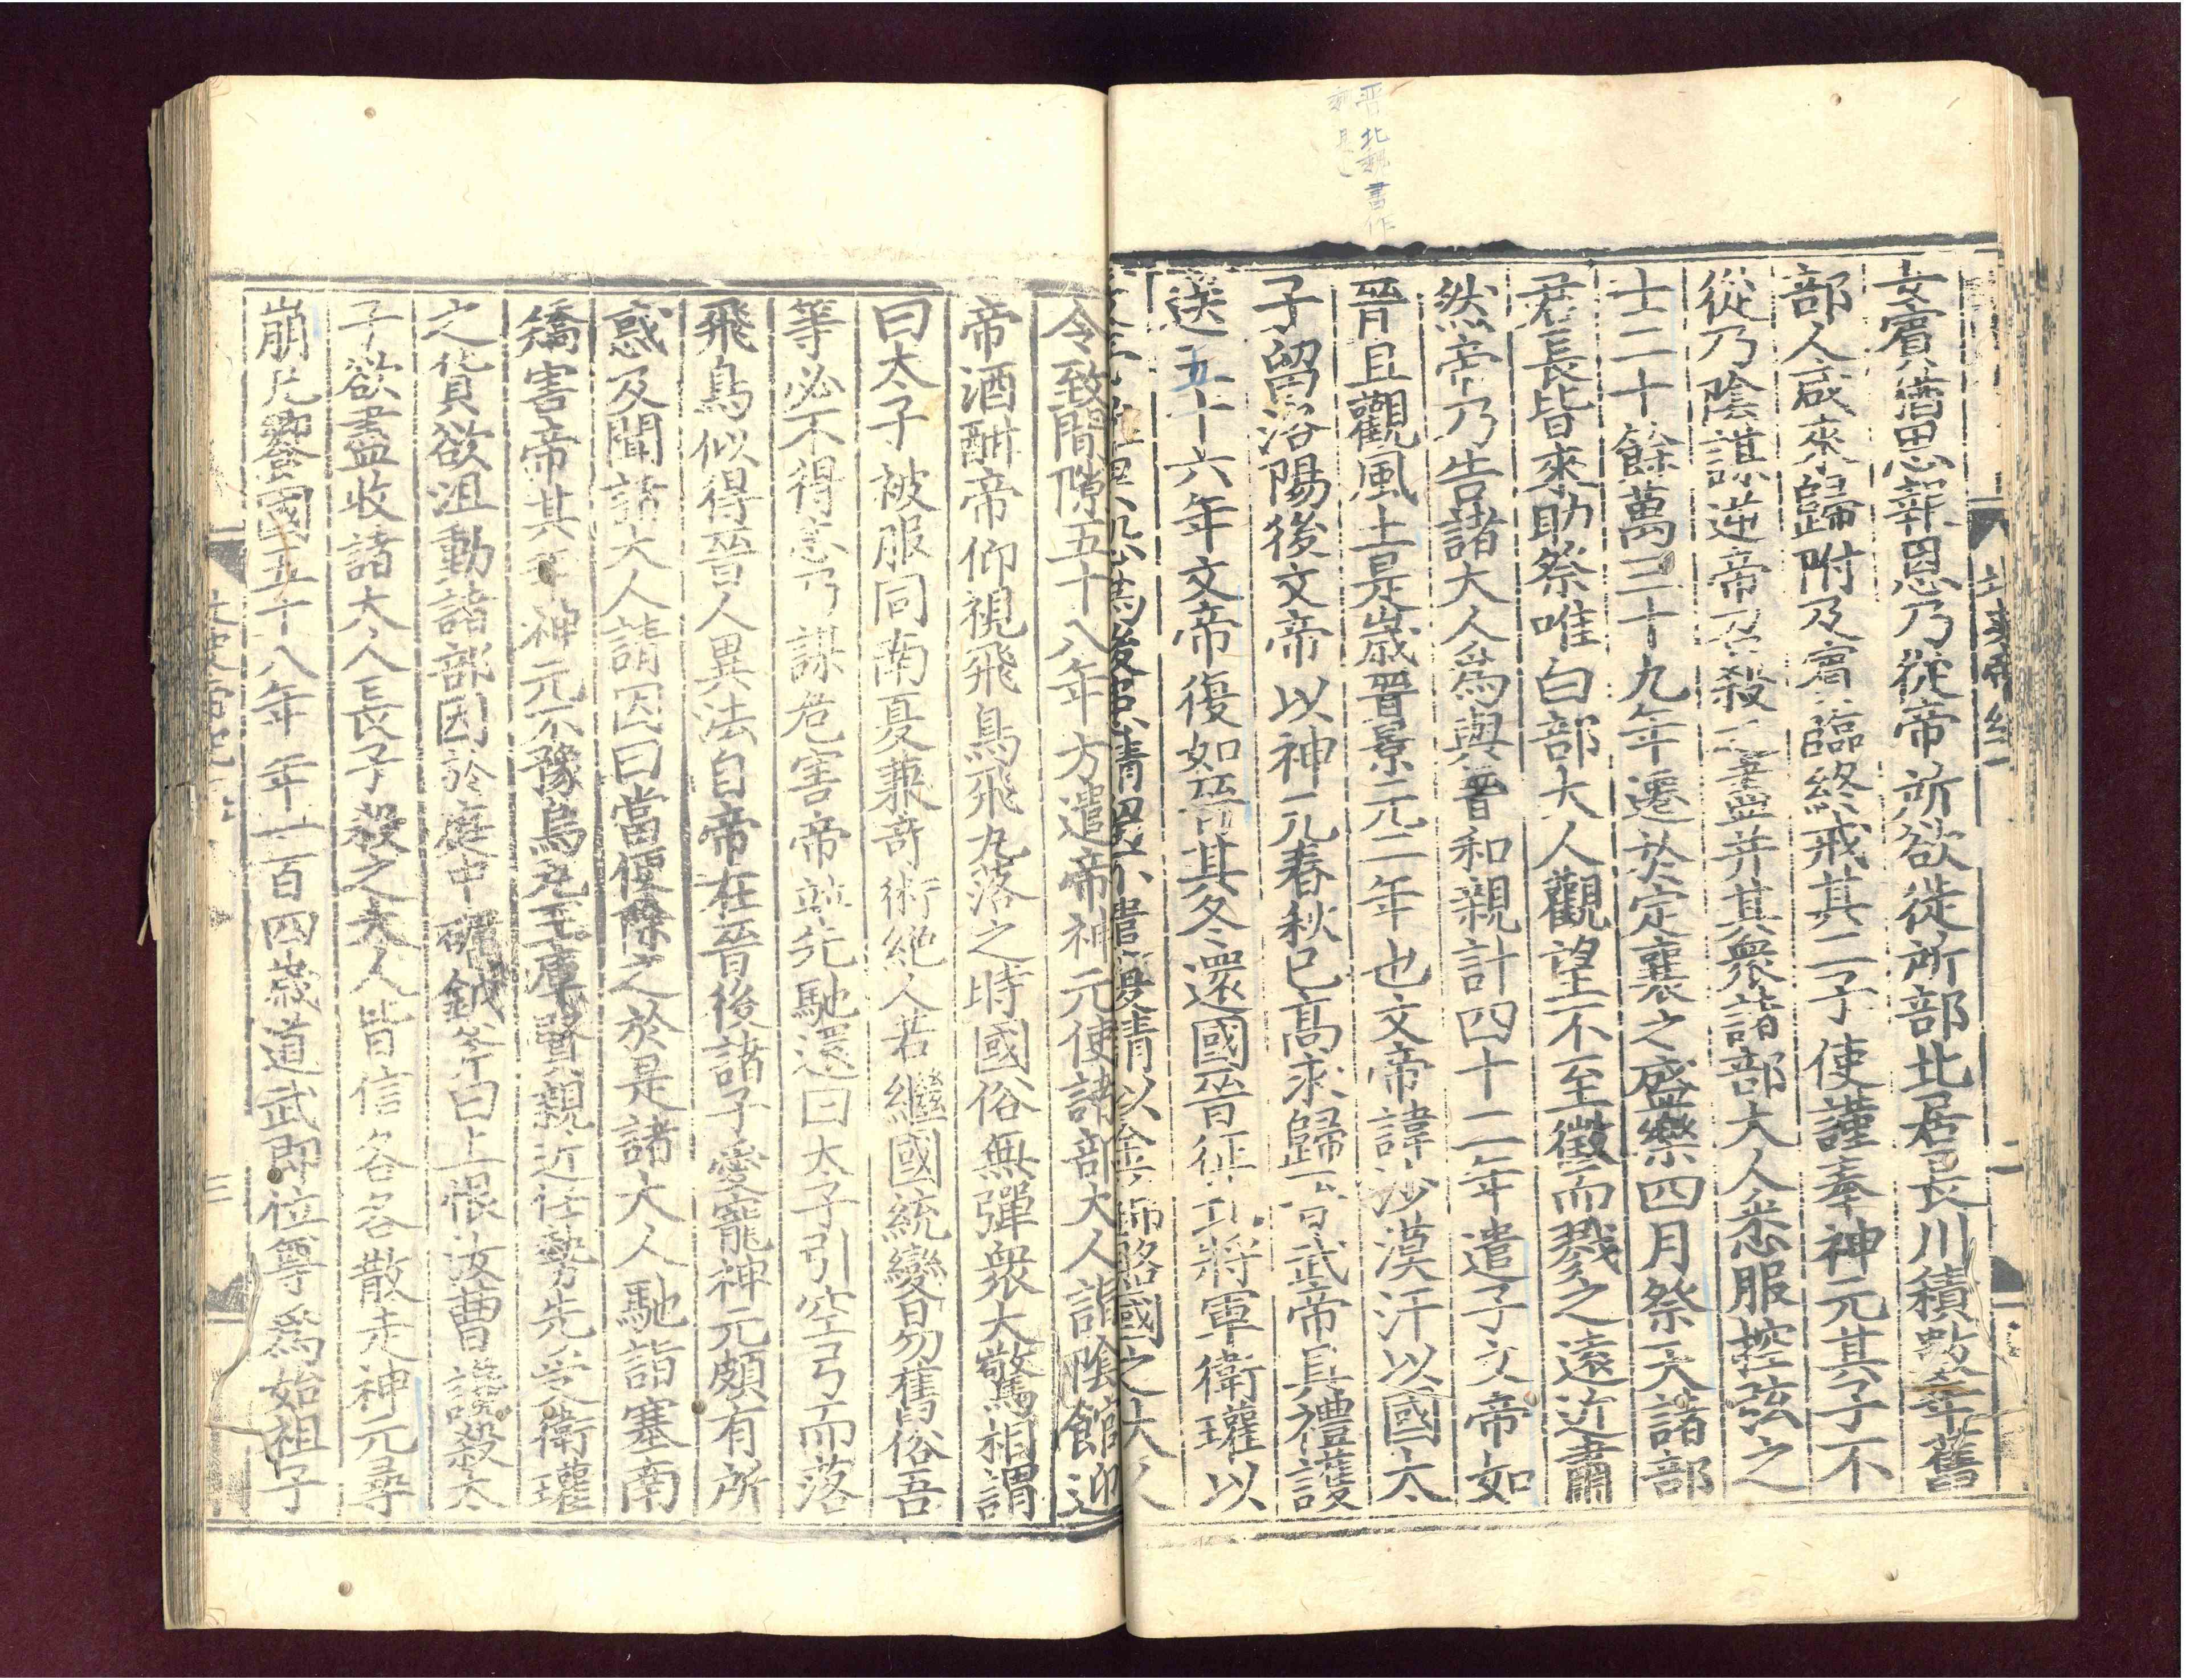 晉北魏書作
女賓猶思報恩乃從帝所欲徙所部北居長川積數年舊
部人咸來歸附及賓臨終戒其二子使謹奉神元其子不
從乃陰謀逆帝召殺之盡并其衆諸部大人悉服控弦之
士二十餘萬三十九年遷於定襄之盛樂四月祭天諸部
君長皆來助祭唯白部大人觀望不至徵而戮之遠近肅
然帝乃告諸大人爲與晉和親計四十二年遣子文帝如
晉且觀風土是歲晉景元二年也文帝諱沙漠汗以國太
子留洛陽後文帝以神元春秋已高求歸晉武帝具禮護
送五十六年文帝復如晉其冬還國晉征北將軍衛瓘以
後忠請留不遣復請以金錦賂國之大人
令致間隙五十八年方遣帝神元使諸部大人詣陰館迎
帝酒酣帝仰視飛鳥飛丸落之時國俗無彈衆大驚相謂
曰太子被服同南夏兼奇術絶人若繼國統變易舊俗吾
等必不得志乃謀危害帝並先馳還曰太子引空弓而落
飛鳥似得晉人異法自帝在晉後諸子愛寵神元頗有所
惑及聞諸大人請因曰當便除之於是諸大人馳詣塞南
矯害帝其年神元不豫烏丸王庫賢親近任勢先受衛瓘
之貨欲沮動諸部因於庭中礪鉞斧曰上恨汝曹讒殺太
子欲盡收諸大人長子殺之大人皆信各各散走神元尋
崩凡饗國五十八年年一百四歲道武即位尊爲始祖子
三